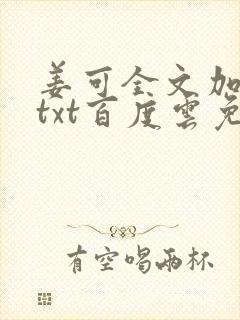 姜可全文加
txt百度雲免
有空喝兩杯